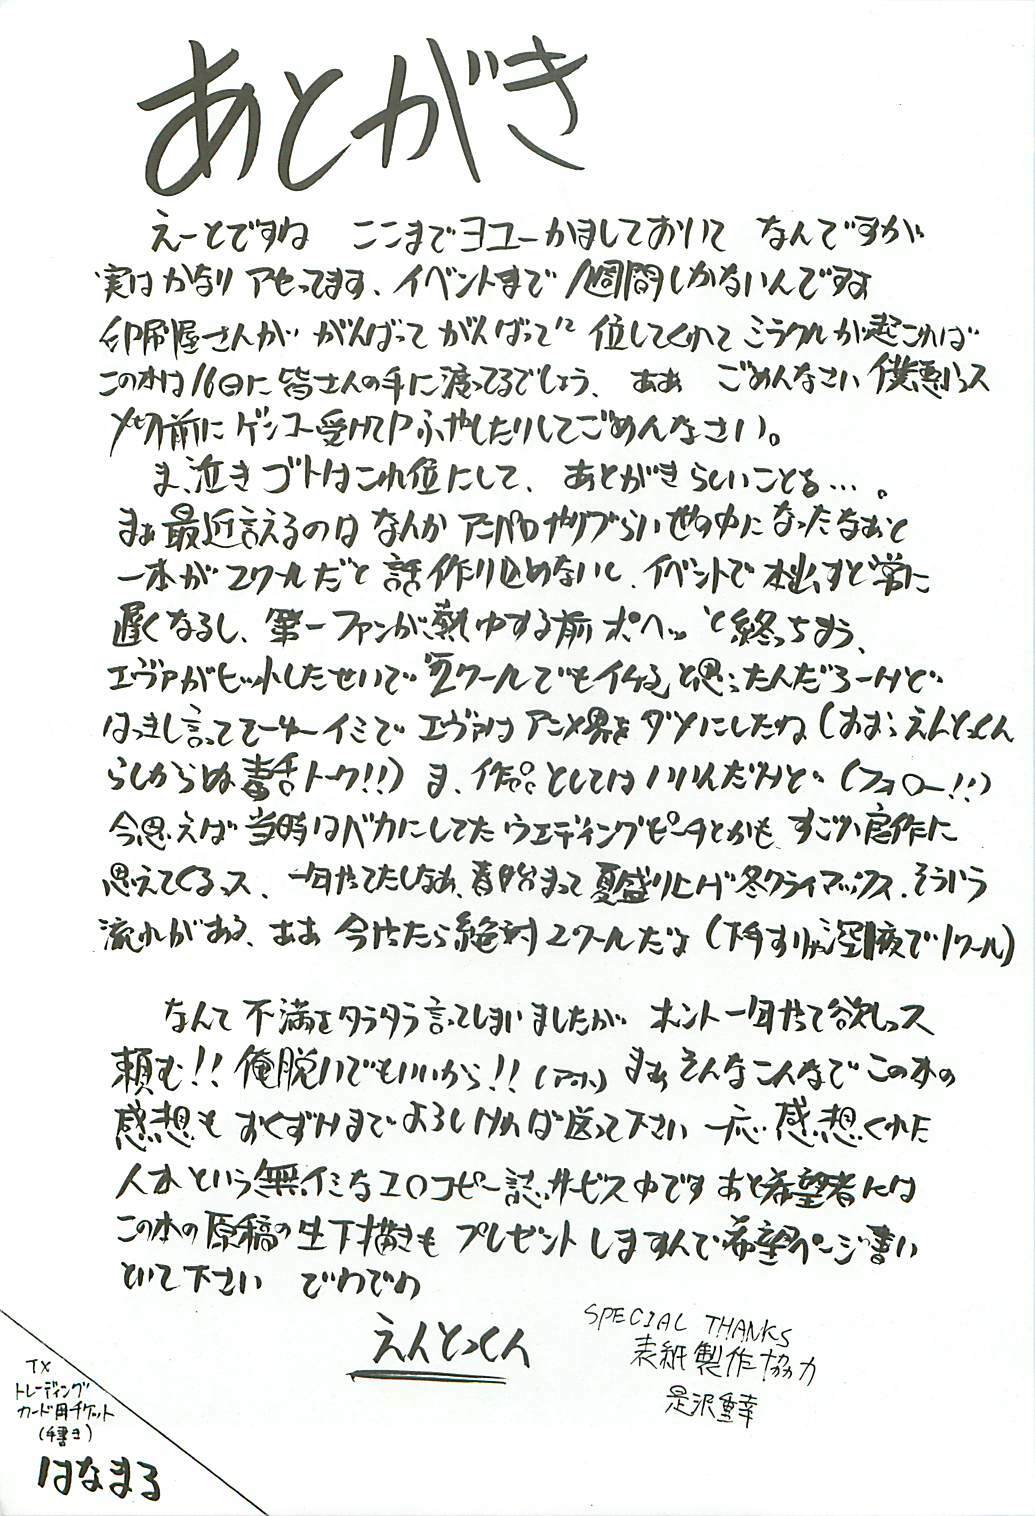 あとがき
えーとですね ここまでヨユーかましておいて なんですが
実はかなり アセってます、イベントまで 1週間しかないんですよ
印刷屋さんが がんばって がんばって 位してくれて ミラクルが起これば
この本は16日に皆さんの手に渡ってるでしょう、 ああ ごめんなさい 僕悪いっス
〆切前に ゲンコー受けてP ふやしたりしてごめんなさい。
ま、泣きゴトはこれ位にして、 あとがきらしいことを…。
まぁ最近言えるのは なんか アニパロやりづらい世の中に なったなぁと
一本が2クールだと 話作り込めないし、イベントで 本出すと常に
遅くなるし、第一ファンが熱中する前 ポヘッ と終っちまう、
エヴァがヒットしたせいで "2クールでもイケる" と思ったんだろーけど
はっきし言って そーゆーイミで エヴァは アニメ界を ダメにしたね (おおっ えんとっくん
らしからぬ 毒舌トーク!!) ま、作品 としては いいんだけど (フォロー!!)
今思えば 当時はバカにしてた ウエディングピーチとかも すごい名作に
思えてくるっス、一年やってたしなぁ、春始まって 夏盛り上げ 冬クライマックス、そういう
流れがある、ああ 今やったら絶対 2クールだよ (下手すりゃ深夜で1クール)
なんて 不満を タラタラ 言ってしまいましたが ホント 一年やって欲しっス
頼む!! 俺脱いでもいいから!! (アホ) まぁ そんなこんなで この本の
感想も おくずけまで よろしければ送って下さい 一応 感想くれた
人本 という 無イミな エロコピー誌サービス中です あと希望者には
この本の 原稿の 生下描きも プレゼント しますんで 希望ページ書い
といて下さい でわでわ
えんとっくん
SPECIAL THANKS
表紙製作協力
是沢重幸
TX
トレーディング
カード用チケット
(手書き)
はなまる